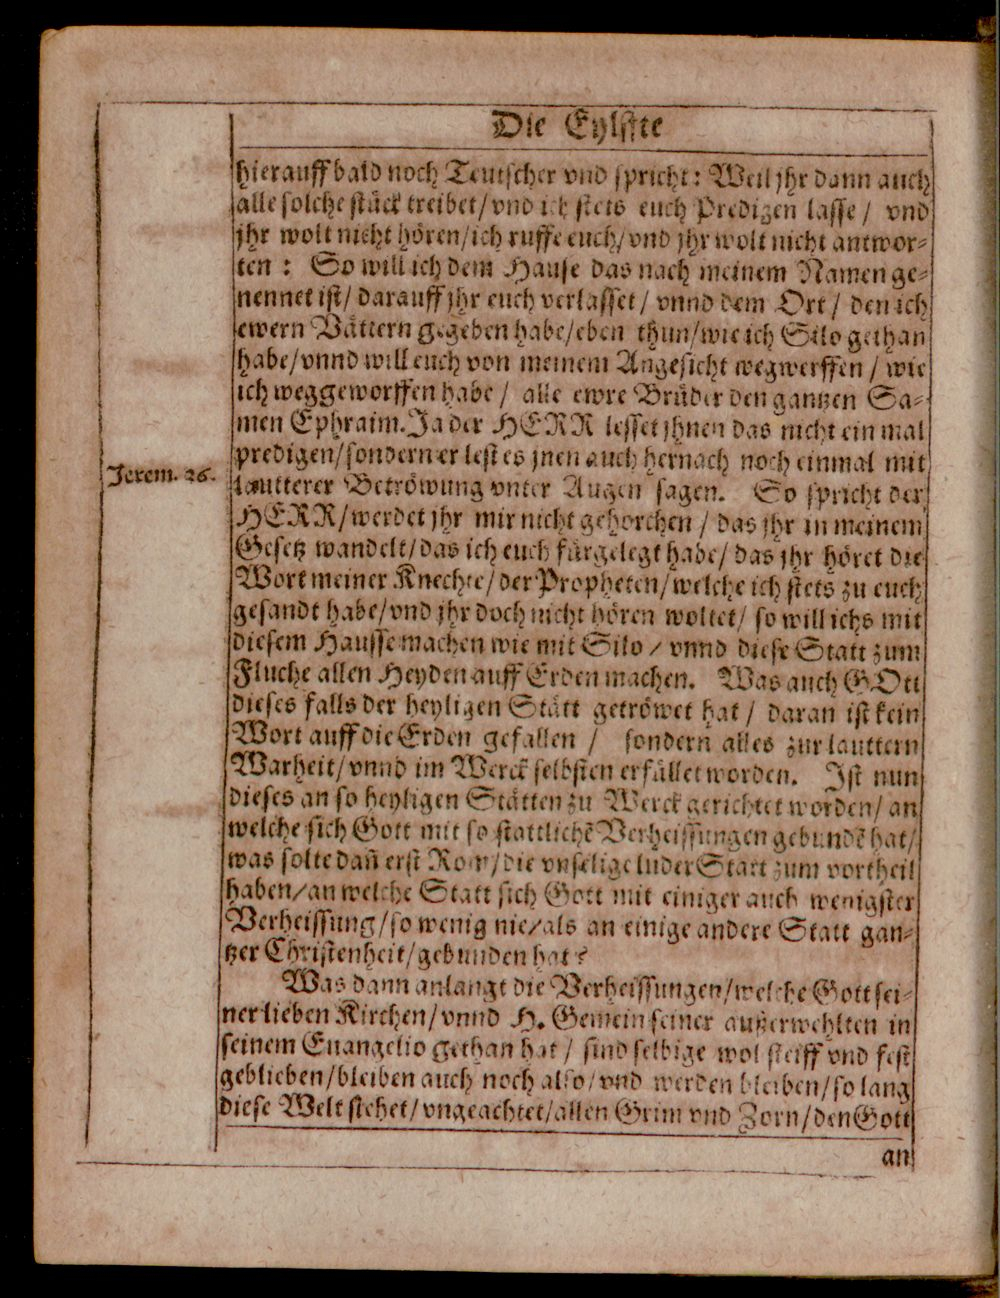 Die Eylffte
hierauff bald noch Teutscher vnd spricht: Weil jhr dann auch
alle solche stück treibet/ vnd ich stets euch Predigen lasse / vnd
jhr wolt nicht hören/ich ruffe euch/vnd jhr wolt nicht antwor-
ten : So will ich dem Hause das nach meinem Namen ge-
nennet ist/ darauff jhr euch verlasset/ vnnd dem Ort / den ich
ewern Vättern gegeben habe/eben thun/wie ich Silo gethan
habe/vnnd will euch von meinem Angesicht wegwerffen / wie
ich weggeworffen habe / alle ewre Brüder den gantzen Sa-
men Ephraim. Ja der HERR lesset jhnen das nicht ein mal
predigen/sondern er lest es jnen auch hernach noch einmal mit
Jerem. 26.
lautterer Betröwung vnter Augen sagen. So spricht der
HERR/werdet jhr mir nicht gehorchen / das jhr in meinem
Gesetz wandelt/das ich euch fürgelegt habe/ das jhr höret die
Wort meiner Knechte/der Propheten/welche ich stets zu euch
gesandt habe/vnd jhr doch nicht hören woltet/ so will ichs mit
diesem Hausse machen wie mit Silo / vnnd diese Statt zum
Fluche allen Heyden auff Erden machen. Was auch GOtt
dieses falls der heyligen Stätt getröwet hat / daran ist kein
Wort auff die Erden gefallen / sondern alles zur lauttern
Warheit/vnnd im Werck selbsten erfüllet worden. Ist nun
dieses an so heyligen Stätten zu Werck gerichtet worden/ an
welche sich Gott mit so stattlichē Verheissungen gebundē hat/
was solte dañ erst Rom/die vnselige luder Statt zum vortheil
haben/an welche Statt sich Gott mit einiger auch wenigster
Verheissung/so wenig nie/als an einige andere Statt gan-
tzer Christenheit/gebunden hat?
Was dann anlangt die Verheissungen/welche Gott sei-
ner lieben Kirchen/vnnd H. Gemein seiner außerwehlten in
seinem Euangelio gethan hat / sind selbige wol steiff vnd fest
geblieben/bleiben auch noch also/vnd werden bleiben/so lang
diese Welt stehet/vngeachtet/allen Grim vnd Zorn/den Gott
an